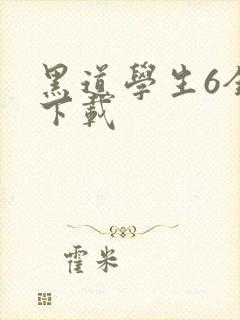 黑道學生6全
下載
霍米